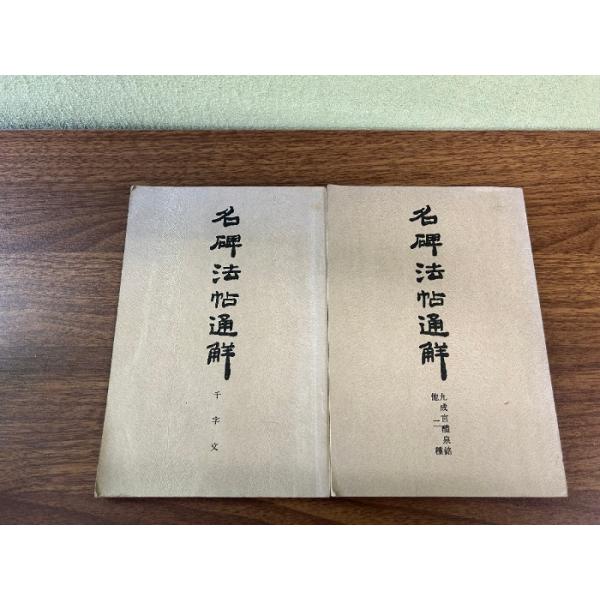 名碑法帖通解
千字文
名碑法帖通解
九成宮醴泉銘
他二種